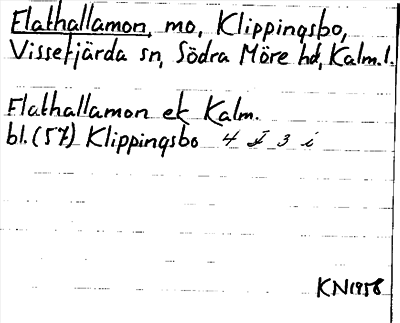 Flathallamon, mo, Klippingsbo,
Vissefjärda sn, Södra Möre hd, Kalm.l.
Flathallamon ek Kalm.
bl. (57) Klippingsbo 4 I 3 i
KN1958